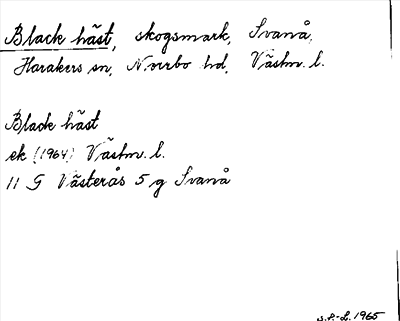 Black häst, skogsmark, Svanå,
Harakers sn, Norrbo hd, Västm. l.
Black häst
ek (1964) Västm. l.
11 G Västerås 5 g Svanå
S.L.-L. 1965